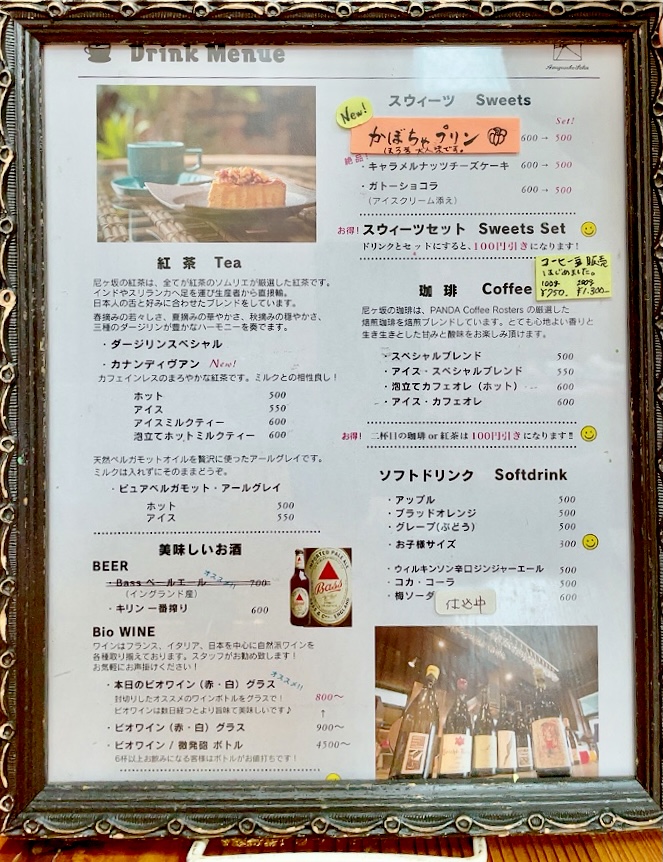 Drink Menue
紅茶 Tea
尼ヶ坂の紅茶は、全てが紅茶のソムリエが厳選した紅茶です。
インドやスリランカへ足を運び生産者から直接輸。
日本人の舌と好みに合わせたブレンドをしています。
春摘みの若々しさ、夏摘みの華やかさ、秋摘みの穏やかさ、
三種のダージリンが豊かなハーモニーを奏でます。
・ダージリンスペシャル
・カナンディヴァン New!
カフェインレスのまろやかな紅茶です。ミルクとの相性良し！
ホット 500
アイス 550
アイスミルクティー 600
泡立てホットミルクティー 600
天然ベルガモットオイルを贅沢に使ったアールグレイです。
ミルクは入れずにそのままどうぞ。
・ピュアベルガモット・アールグレイ
ホット 500
アイス 550
美味しいお酒
BEER
・Bass ペールエール オススメ!! 700
（イングランド産）
・キリン 一番搾り 600
Bass
Bio WINE
ワインはフランス、イタリア、日本を中心に自然派ワインを
各種取り揃えております。スタッフがお勧め致します！
お気軽にお声掛けください！
オススメ!!
・本日のビオワイン（赤・白）グラス
封切りしたオススメのワインボトルをグラスで！ 800～
ビオワインは数日経つとより旨味て美味しいです♪ ↑
・ビオワイン（赤・白）グラス 900～
・ビオワイン / 微発砲 ボトル 4500～
6杯以上お飲みになる客様はボトルがお値打ちです！
スウィーツ Sweets
New!
Set!
かぼちゃプリン 600→500
ほろ苦 大人味です。
絶品！
・キャラメルナッツチーズケーキ 600→500
・ガトーショコラ 600→500
（アイスクリーム添え）
お得！ スウィーツセット Sweets Set
ドリンクとセットにすると、100円引きになります！
コーヒー豆 販売
はじめました。
100g 200g
¥750 ¥1,300
珈琲 Coffee
尼ヶ坂の珈琲は、PANDA Coffee Rosters の厳選した
焙煎珈琲を焙煎ブレンドしています。とても心地よい香りと
生き生きとした甘みと酸味をお楽しみ頂けます。
・スペシャルブレンド 500
・アイス・スペシャルブレンド 550
・泡立てカフェオレ（ホット） 600
・アイス・カフェオレ 600
お得！ 二杯目の珈琲 or 紅茶は 100円引き になります!!
ソフトドリンク Softdrink
・アップル 500
・ブラッドオレンジ 500
・グレープ(ぶどう) 500
・お子様サイズ 300
・ウィルキンソン辛口ジンジャーエール 500
・コカ・コーラ 500
・梅ソーダ 仕込中 600